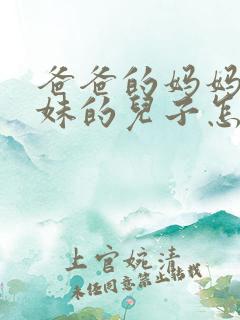 爸爸的妈妈
妹的兒子怎
上官婉清
未经同意禁止转载